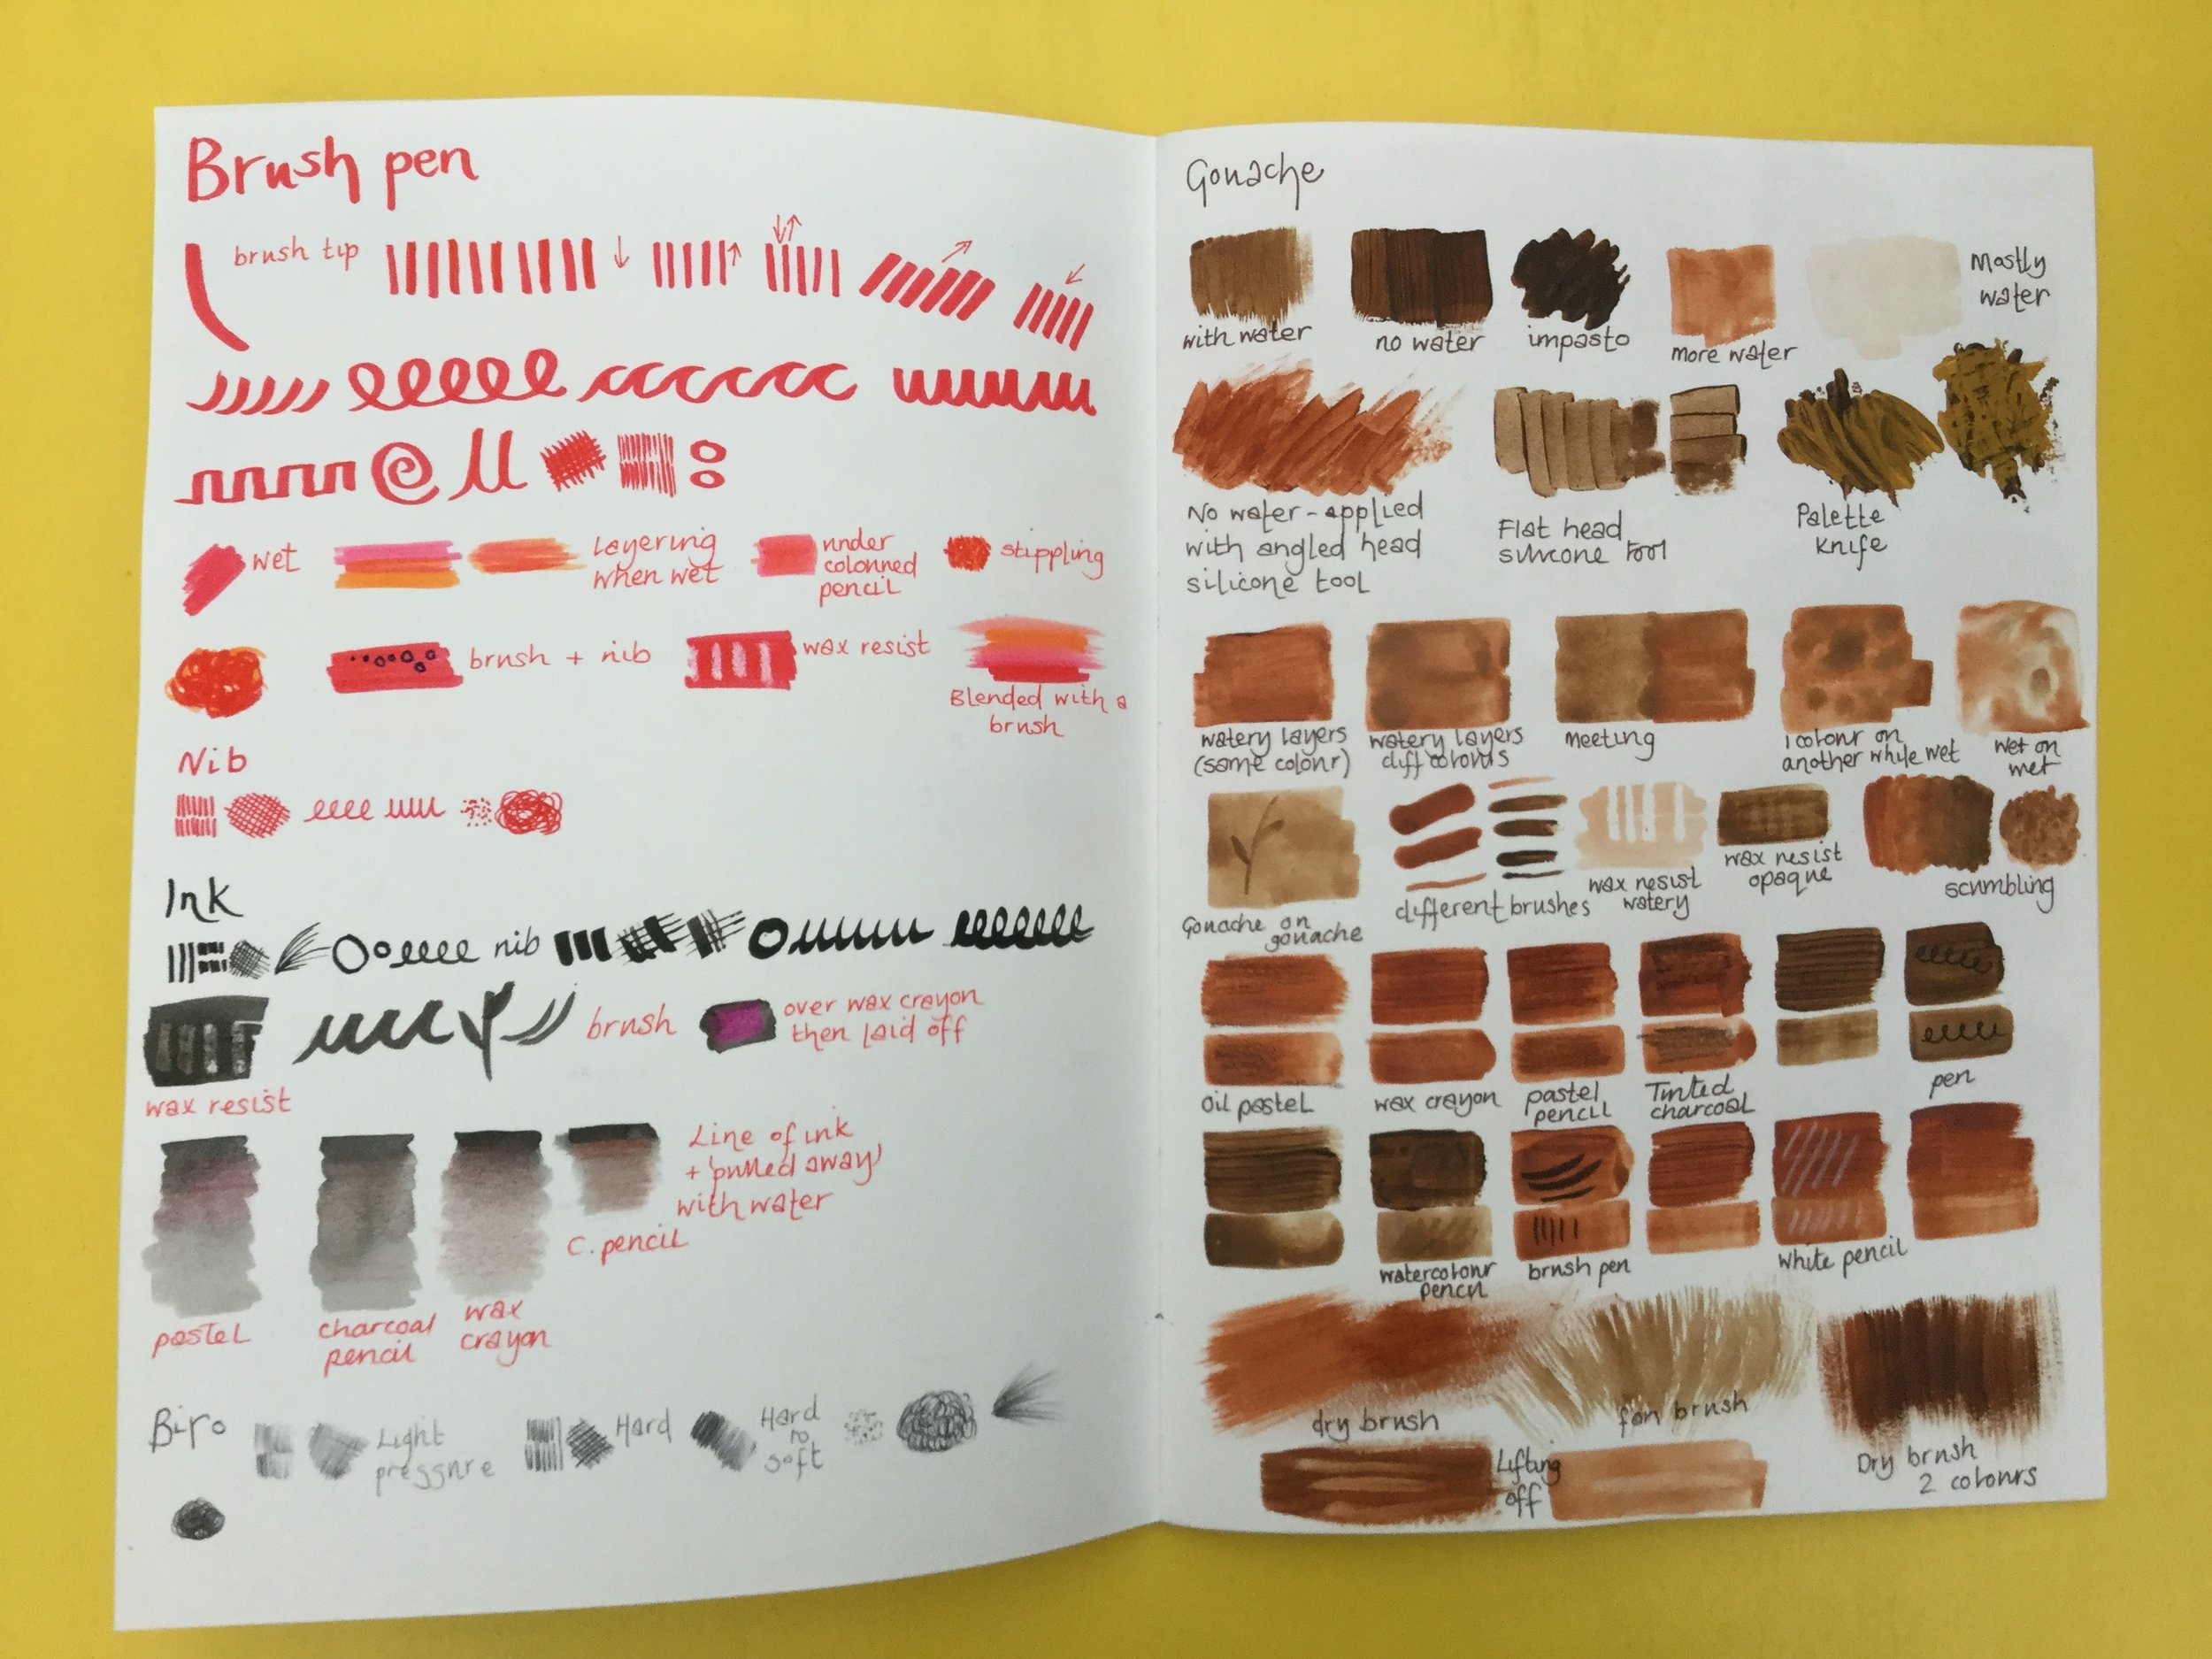 Brush pen
brush tip
wet
layering
when wet
under
coloured
pencil
stippling
brush + nib
wax resist
Blended with a
brush
Nib
Ink
nib
brush
over wax crayon
then laid off
wax resist
Line of ink
+ 'pulled away'
with water
C. pencil
pastel
charcoal
pencil
wax
crayon
Biro
Light
pressure
Hard
Hard
to
soft
Gouache
with water
no water
impasto
more water
Mostly
water
No water - applied
with angled head
silicone tool
Flat head
silicone tool
Palette
knife
watery layers
(same colour)
watery layers
diff colours
meeting
1 colour on
another while wet
wet on
wet
Gouache on
gouache
different brushes
wax resist
watery
wax resist
opaque
scumbling
oil pastel
wax crayon
pastel
pencil
Tinted
charcoal
pen
watercolour
pencil
brush pen
white pencil
dry brush
fan brush
Dry brush
2 colours
Lifting
off